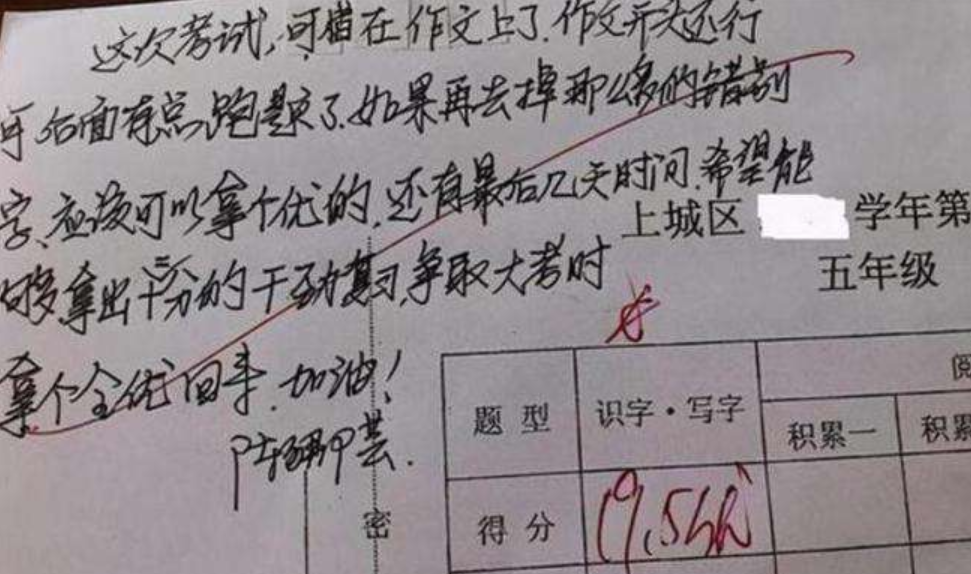 这次考试,可惜在作文上了.作文开头还行
可后面有点跑题了.如果再去掉那么多的错别
字、应该可以拿个优的.还有最后几天时间.希望能
够拿出十二分的干劲复习,争取大考时
拿个全优回来.加油!
上城区 学年第
五年级
题 型 识字·写字 阅
积累一 积累
得 分
密